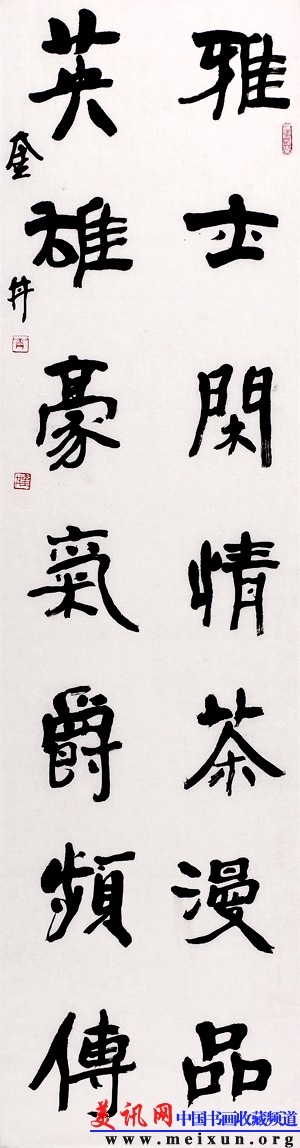 雅士閑情茶漫品
英雄豪氣爵頻傳
金井
美讯网 中国书画收藏频道
www.meixun.org